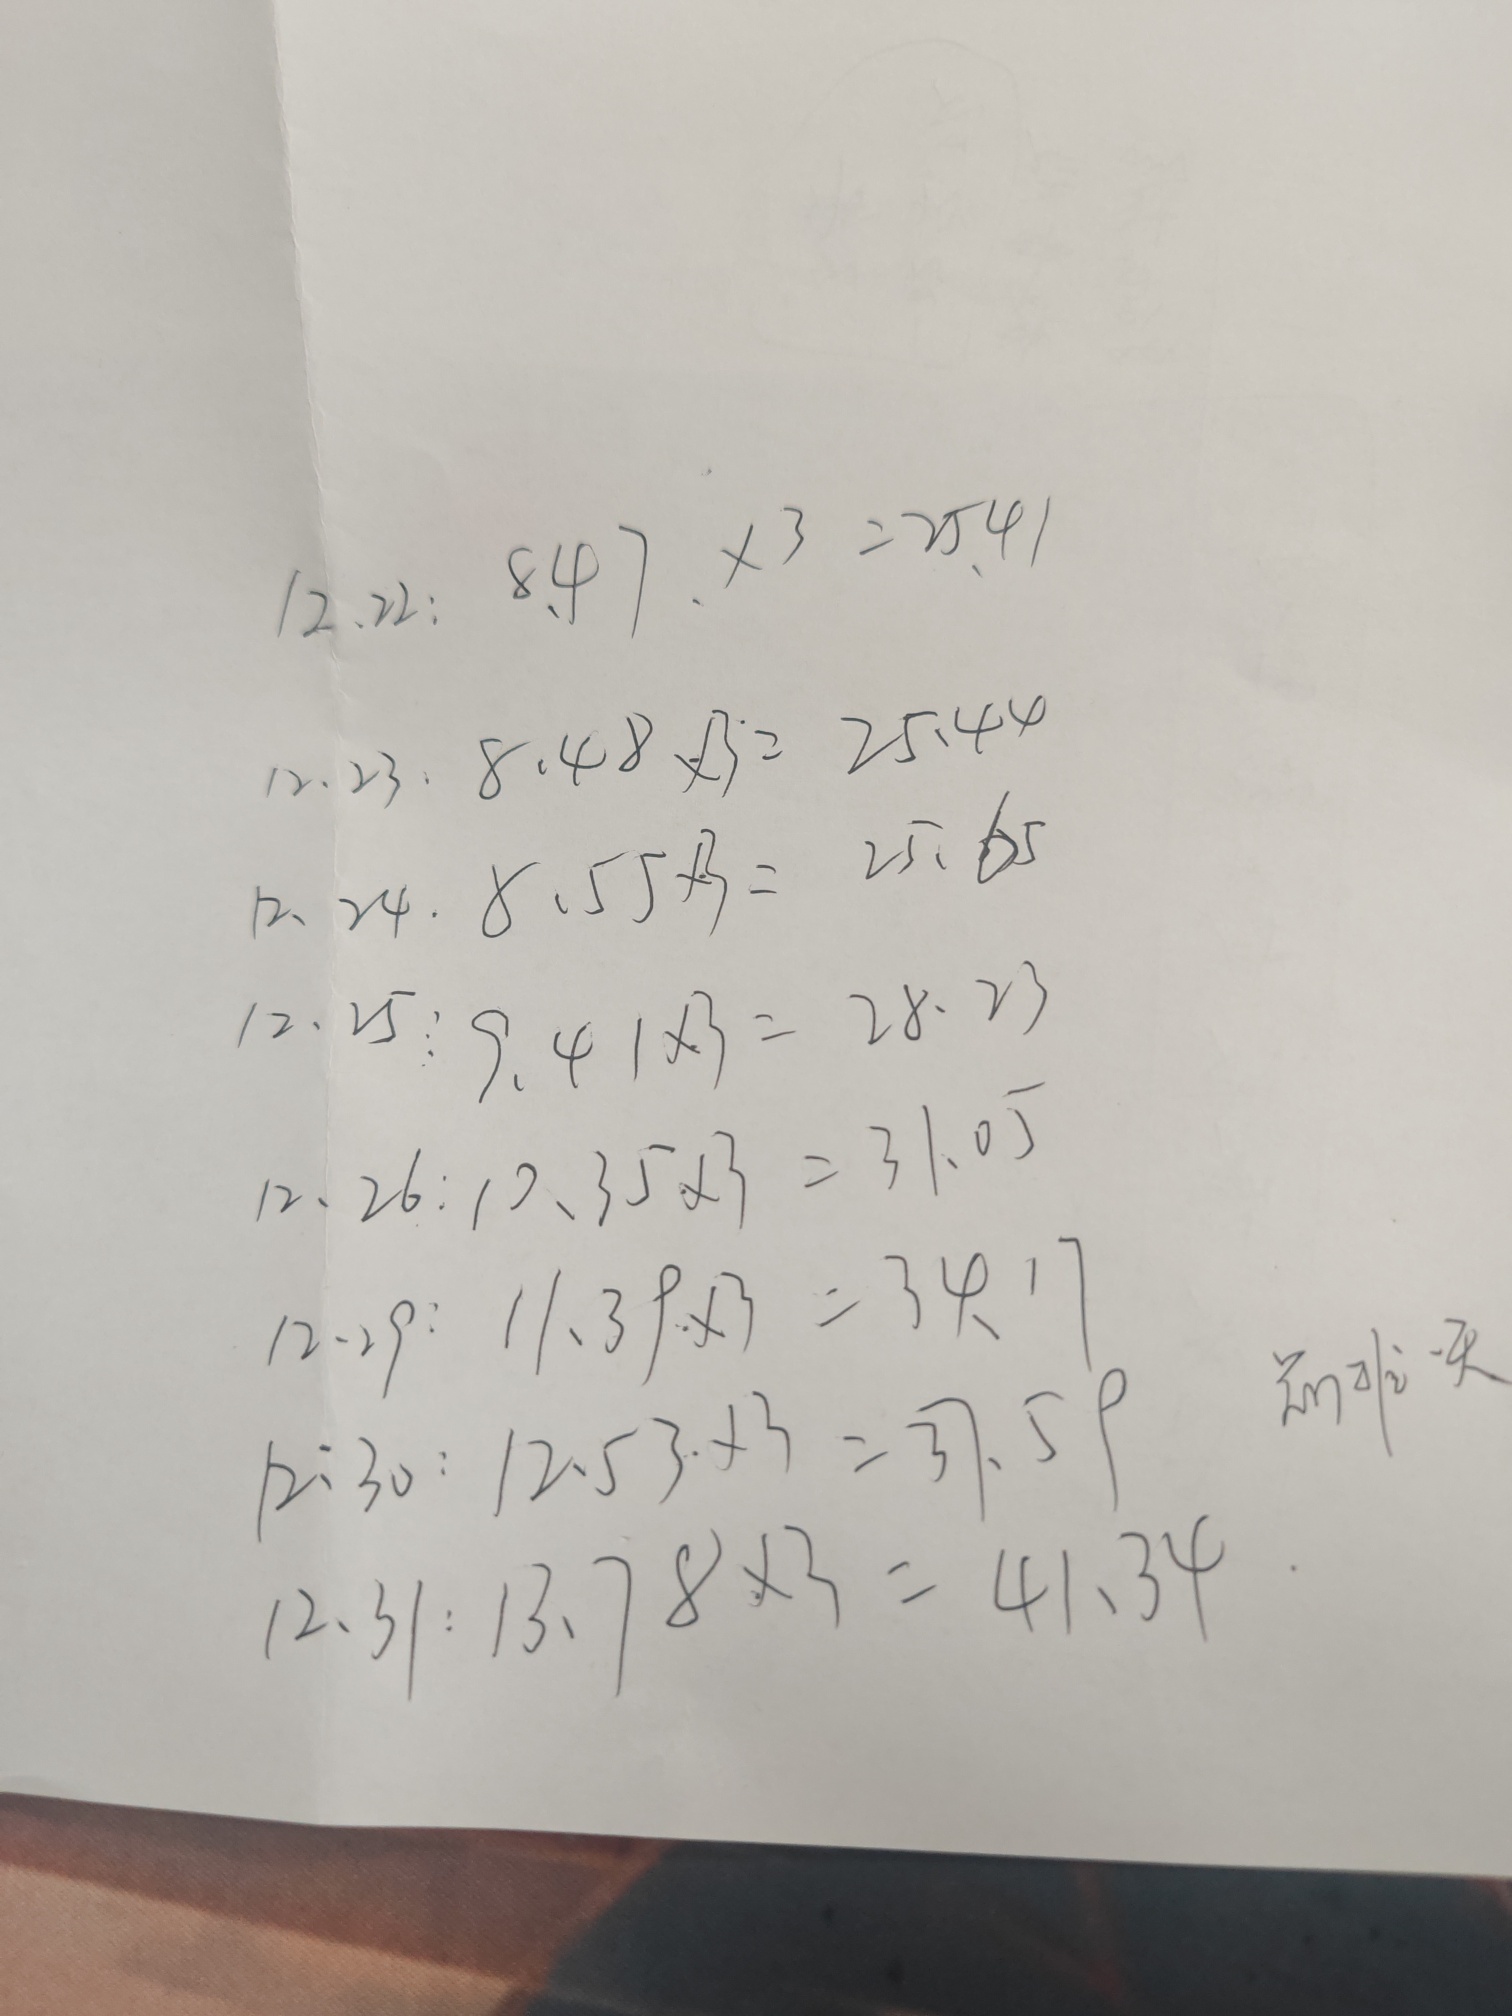 12.22: 8.47 ×3 = 25.41
12.23. 8.48×3= 25.44
12.24. 8.55×3= 25.65
12.25: 9.41×3= 28.23
12.26: 10.35×3 = 31.05
12.29: 11.39×3 = 34.17
12.30: 12.53×3 = 37.59
12.31: 13.78×3 = 41.34